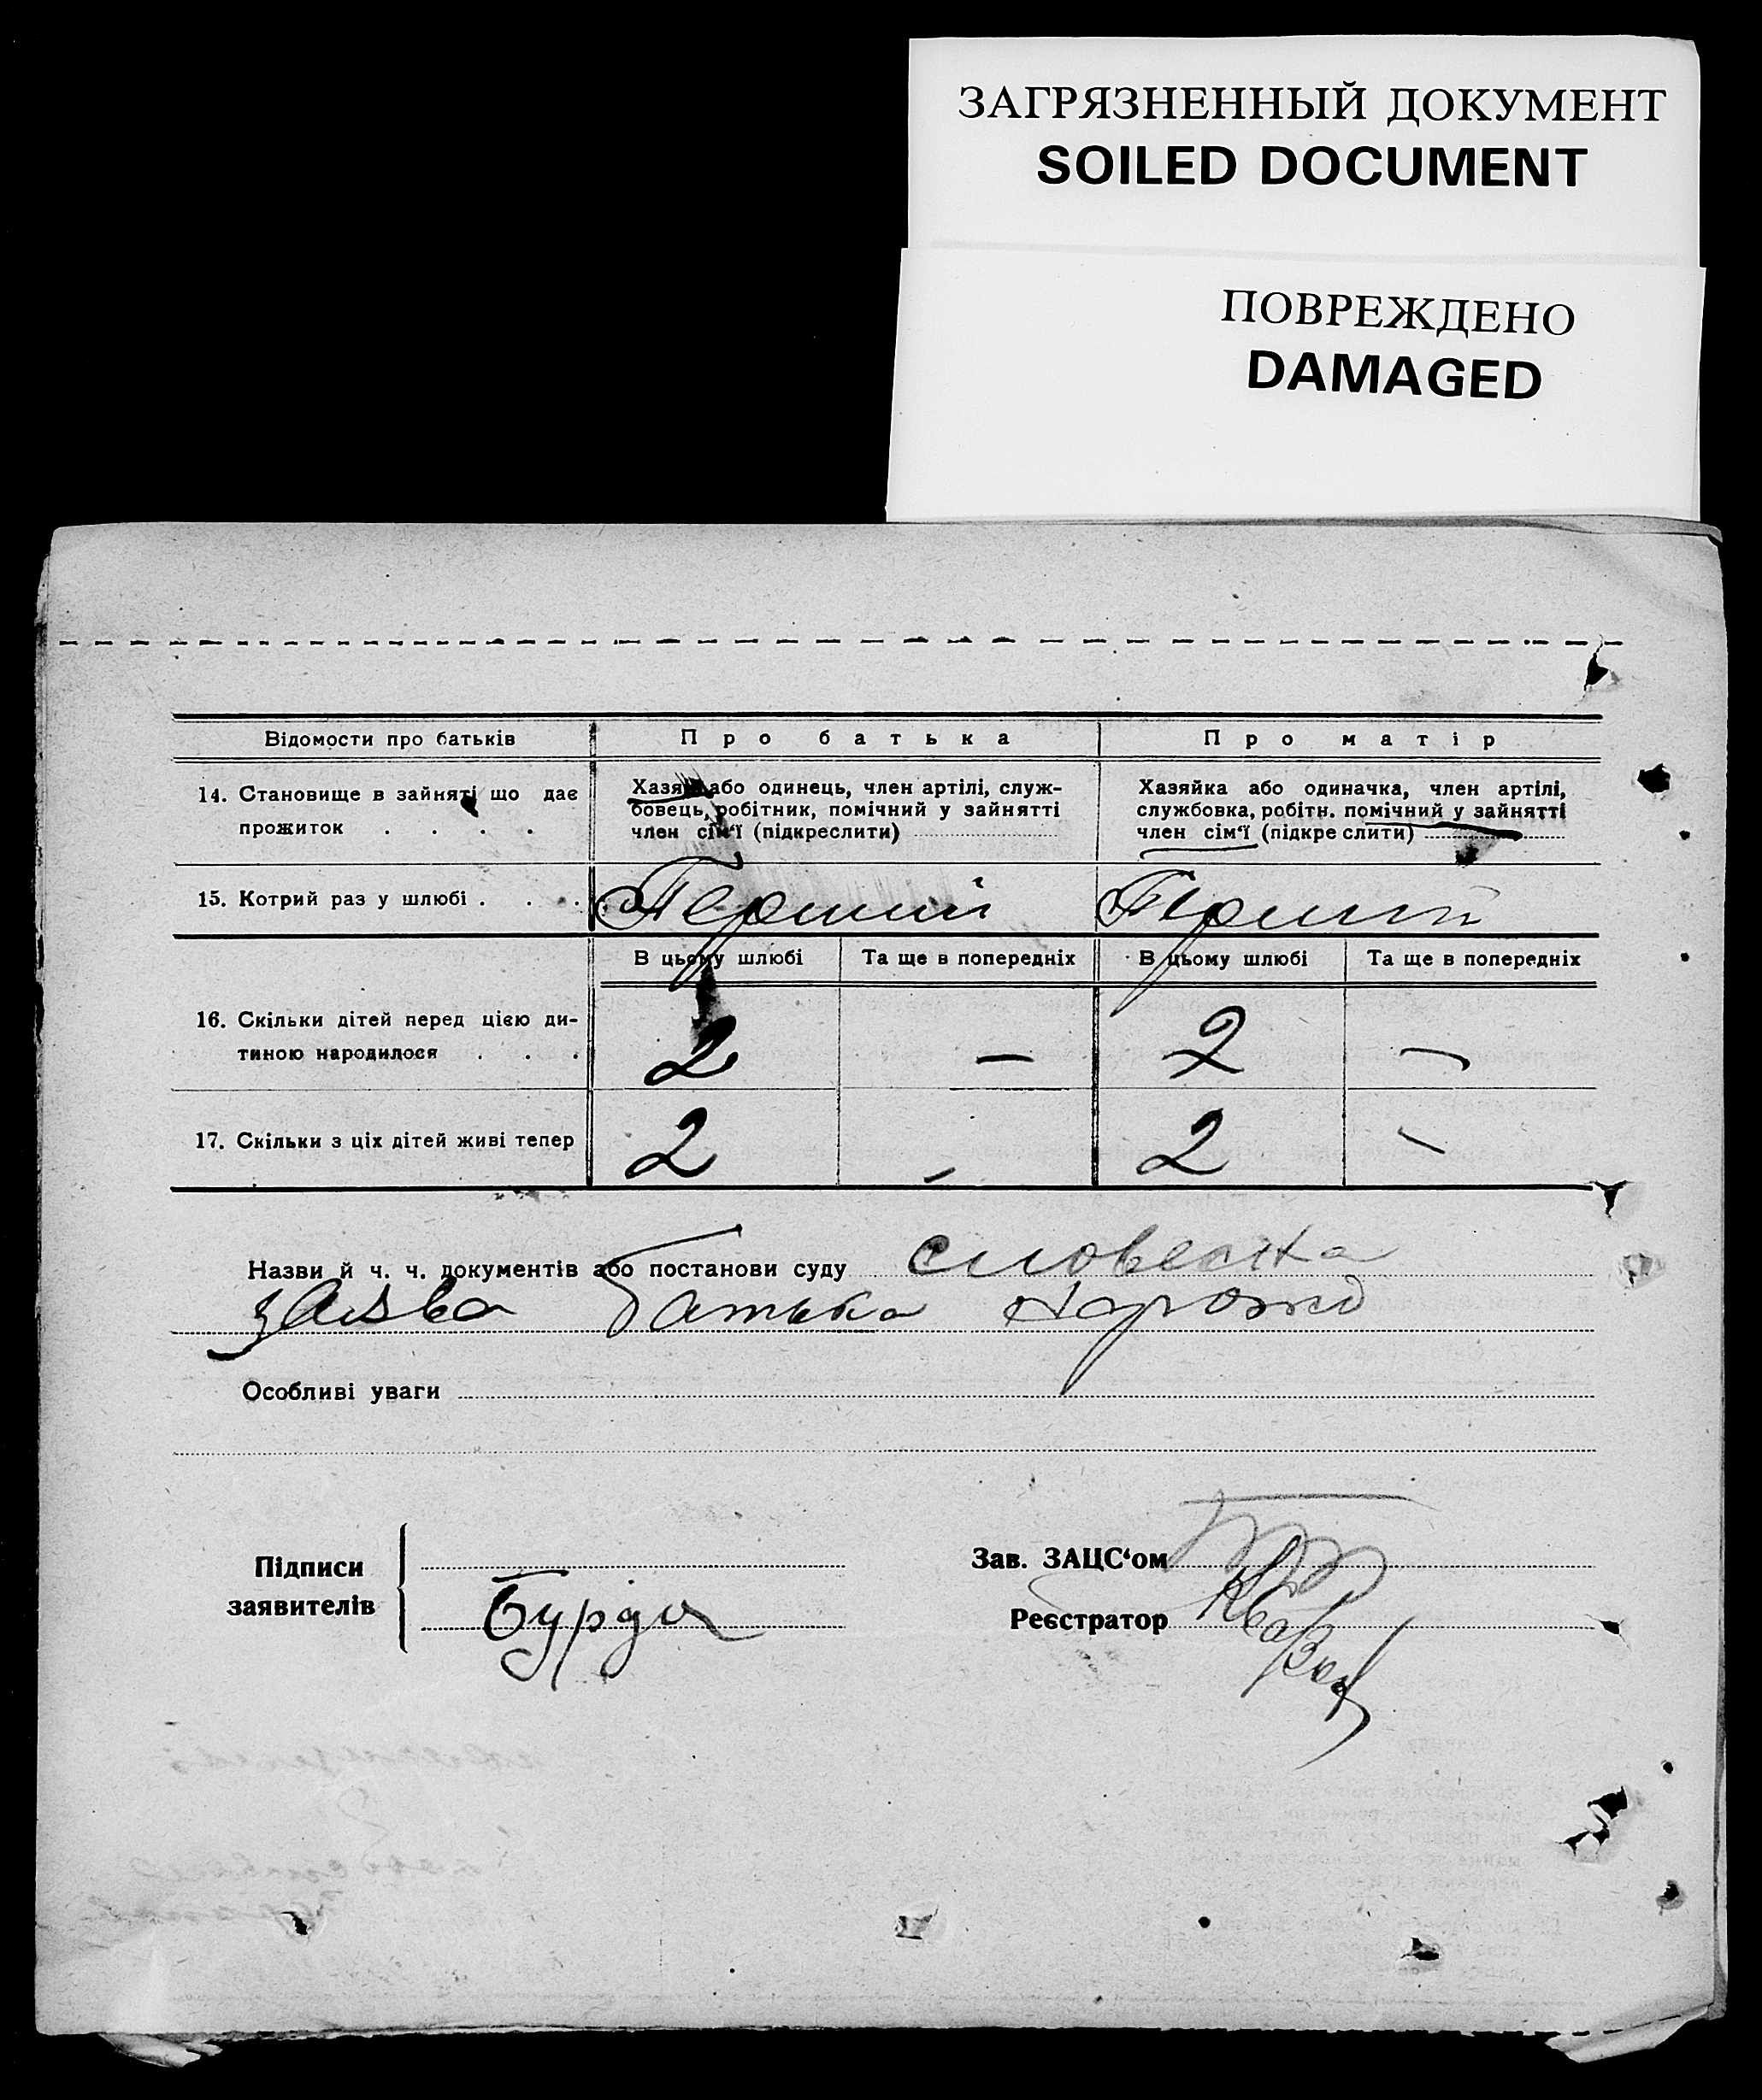 ЗАГРЯЗНЕННЫЙ ДОКУМЕНТ
SOILED DOCUMENT
ПОВРЕЖДЕНО
DAMAGED
Відомости про батьків Про батька Про матір
14. Становище в зайняті що дає
прожиток . . . .
Хазяїн або одинець, член артілі, служ-
бовець, робітник, помічний у зайнятті
член сім‘ї (підкреслити)
Хазяйка або одиначка, член артілі,
службовка, робітн. помічний у зайнятті
член сім‘ї (підкреслити)
15. Котрий раз у шлюбі . . . . Перший Перший
В цьому шлюбі Та ще в попередніх В цьому шлюбі Та ще в попередніх
16. Скільки дітей перед цією ди-
тиною народилося . . . 2 — 2 —
17. Скільки з ціх дітей живі тепер 2 - 2 -
Назви й ч. ч. документів або постанови суду словесна
заява батька
Особливі уваги
Підписи
заявителів
Бурда
Зав. ЗАЦС‘ом
Реєстратор